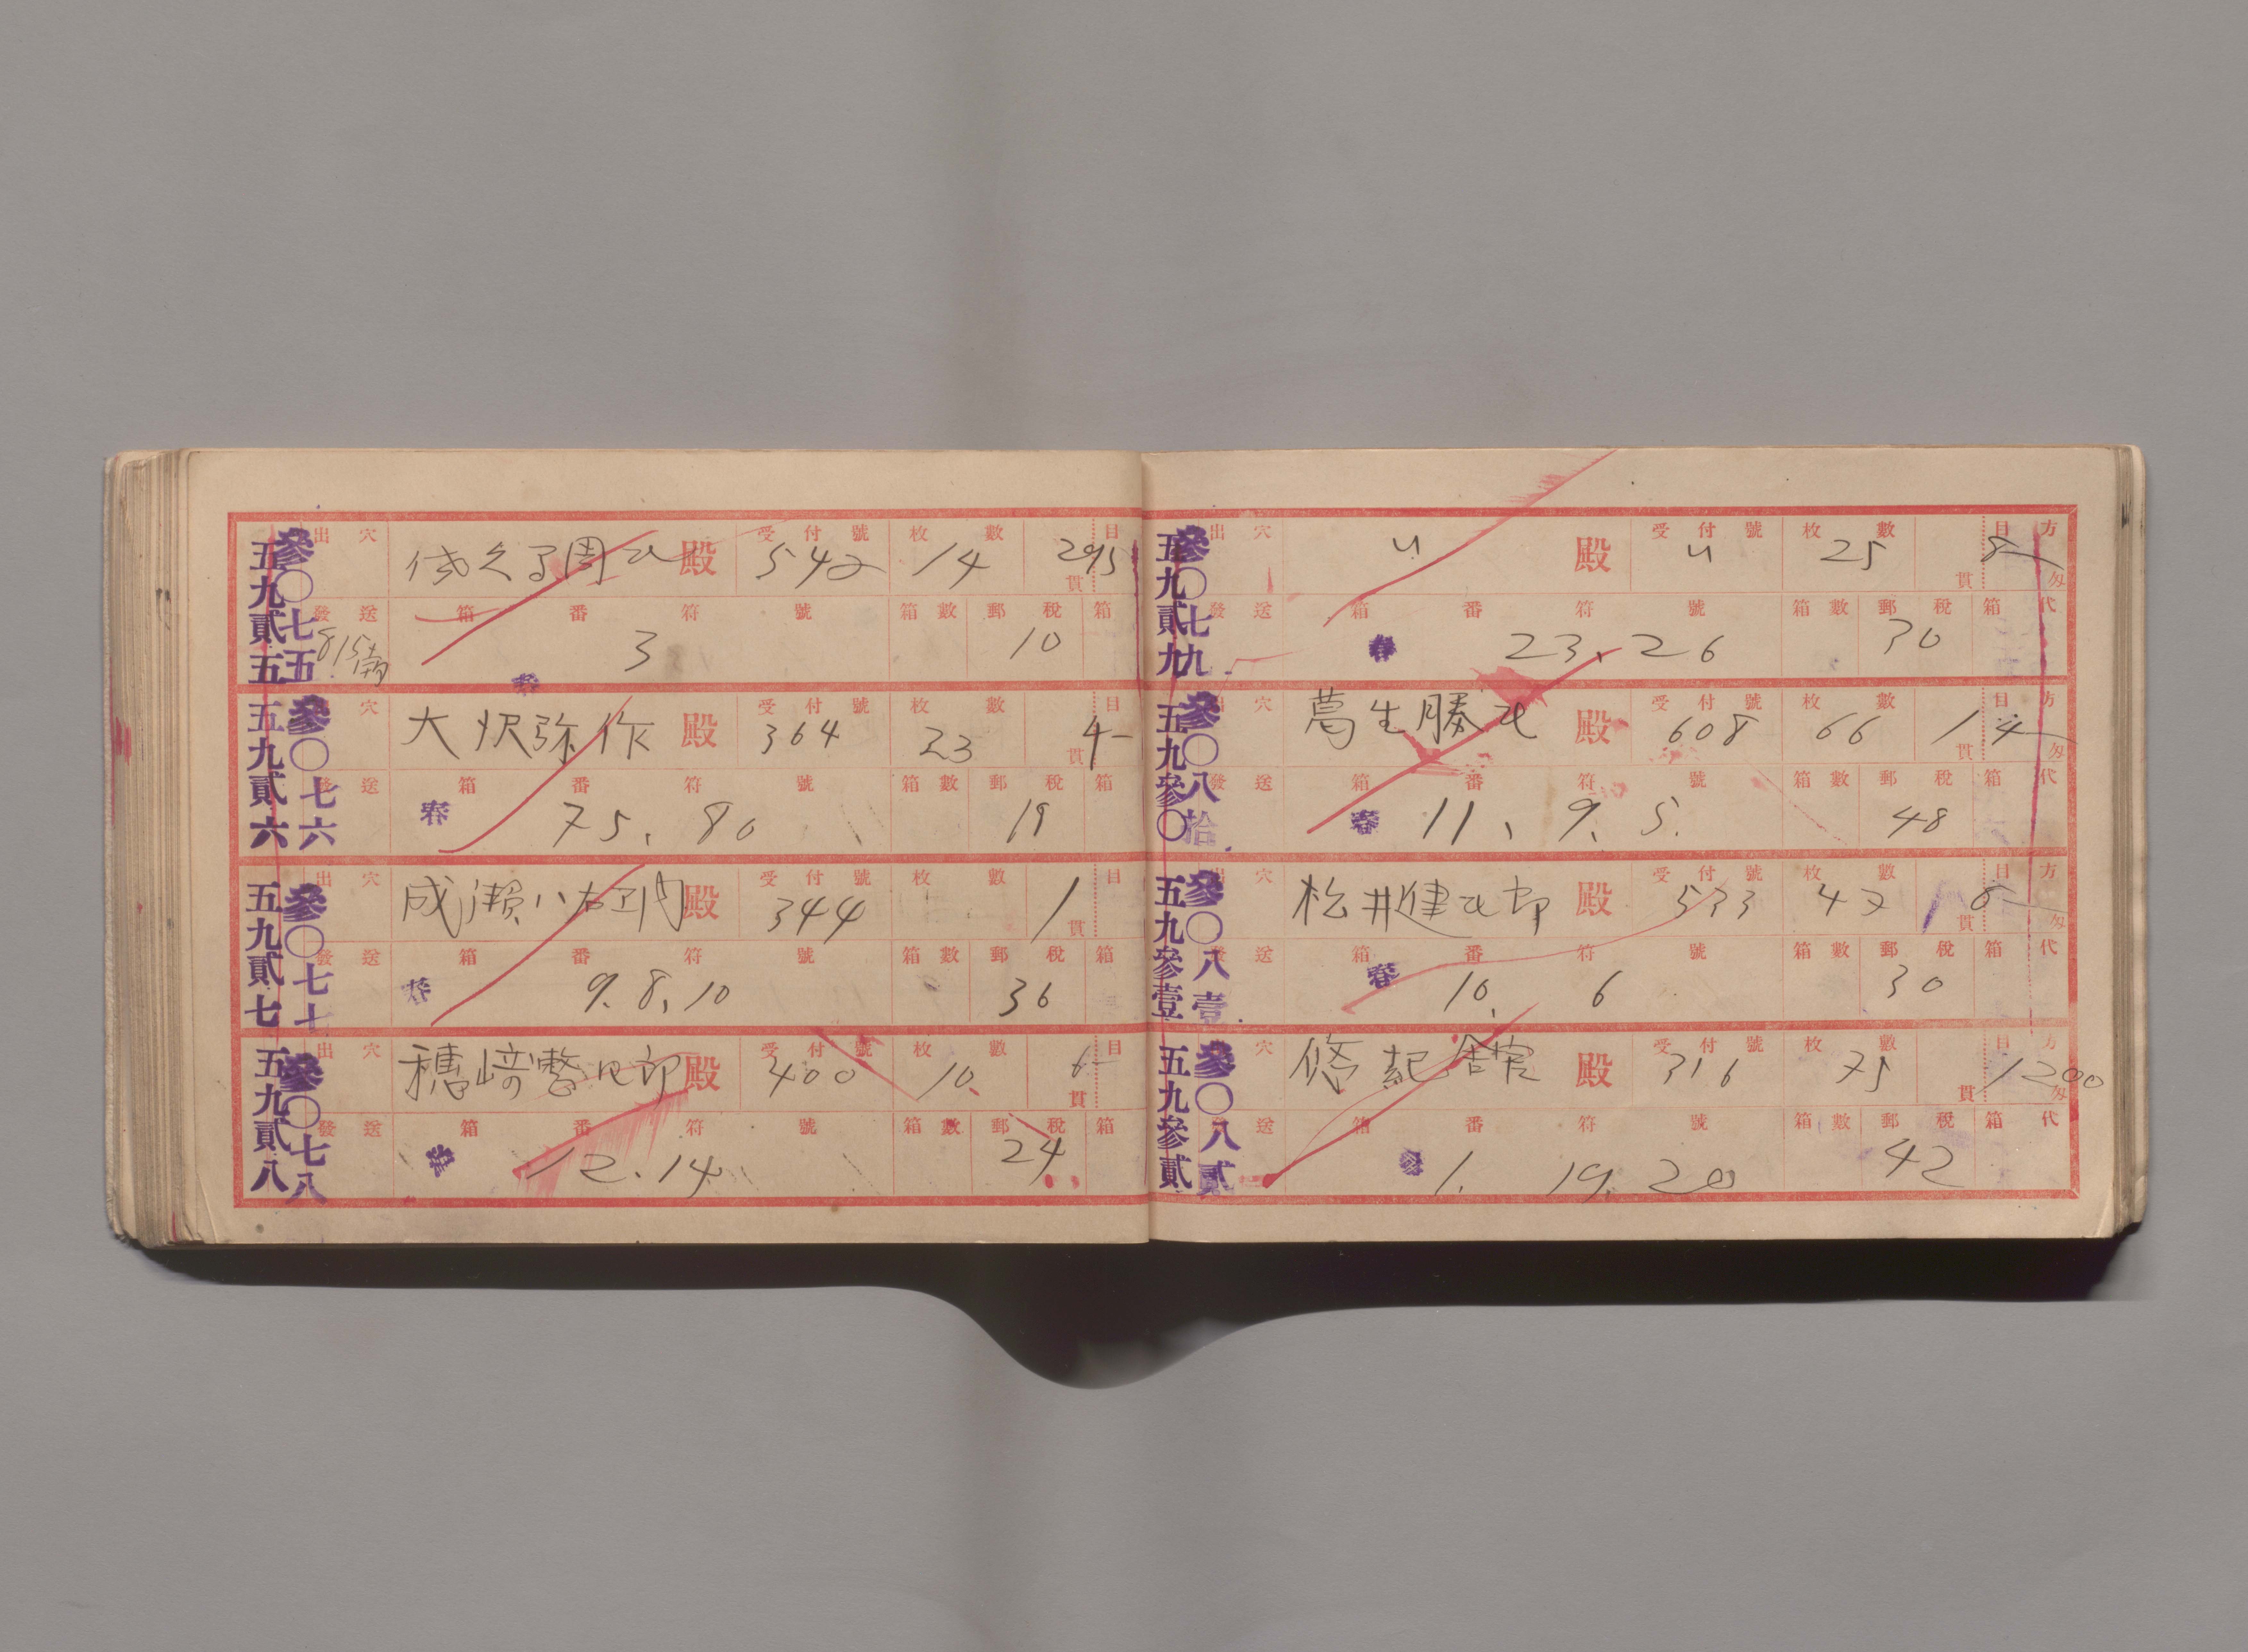 五九貳五 參〇七五
出穴 殿 受付號 542 枚數 14 295 貫目
發送 8/15 箱番符號 3 箱數 郵稅 10 箱
五九貳六 參〇七六
穴 大沢弥作 殿 受付號 364 枚數 23 4- 貫目
發送 春 箱番符號 75、80 箱數 郵稅 19 箱
五九貳七 參〇七七
出穴 成瀬八右エ門 殿 受付號 344 枚數 1 貫目
發送 春 箱番符號 9.8.10 箱數 郵稅 36 箱
五九貳八 參〇七八
出穴 殿 受付號 400 枚數 10 6- 貫目
發送 箱番符號 12.14 箱數 郵稅 24 箱
五九貳九 參〇七九
出穴 〃 殿 受付號 〃 枚數 25 8- 貫目方匁
發送 春 箱番符號 23、26 箱數 郵稅 30 箱代
五九參〇 參〇八拾
出穴 葛生勝 殿 受付號 608 枚數 66 14- 貫目方匁
發送 春 箱番符號 11、9、5. 箱數 郵稅 48 箱代
五九參壹 參〇八壹
出穴 松井健 郎 殿 受付號 533 枚數 47 貫目方匁
發送 春 箱番符號 10、6 箱數 郵稅 30 箱代
五九參貳 參〇八貳
穴 悠紀 殿 受付號 316 枚數 75 1200 貫目方匁
發送 箱番符號 1. 19. 20 箱數 郵稅 42 箱代